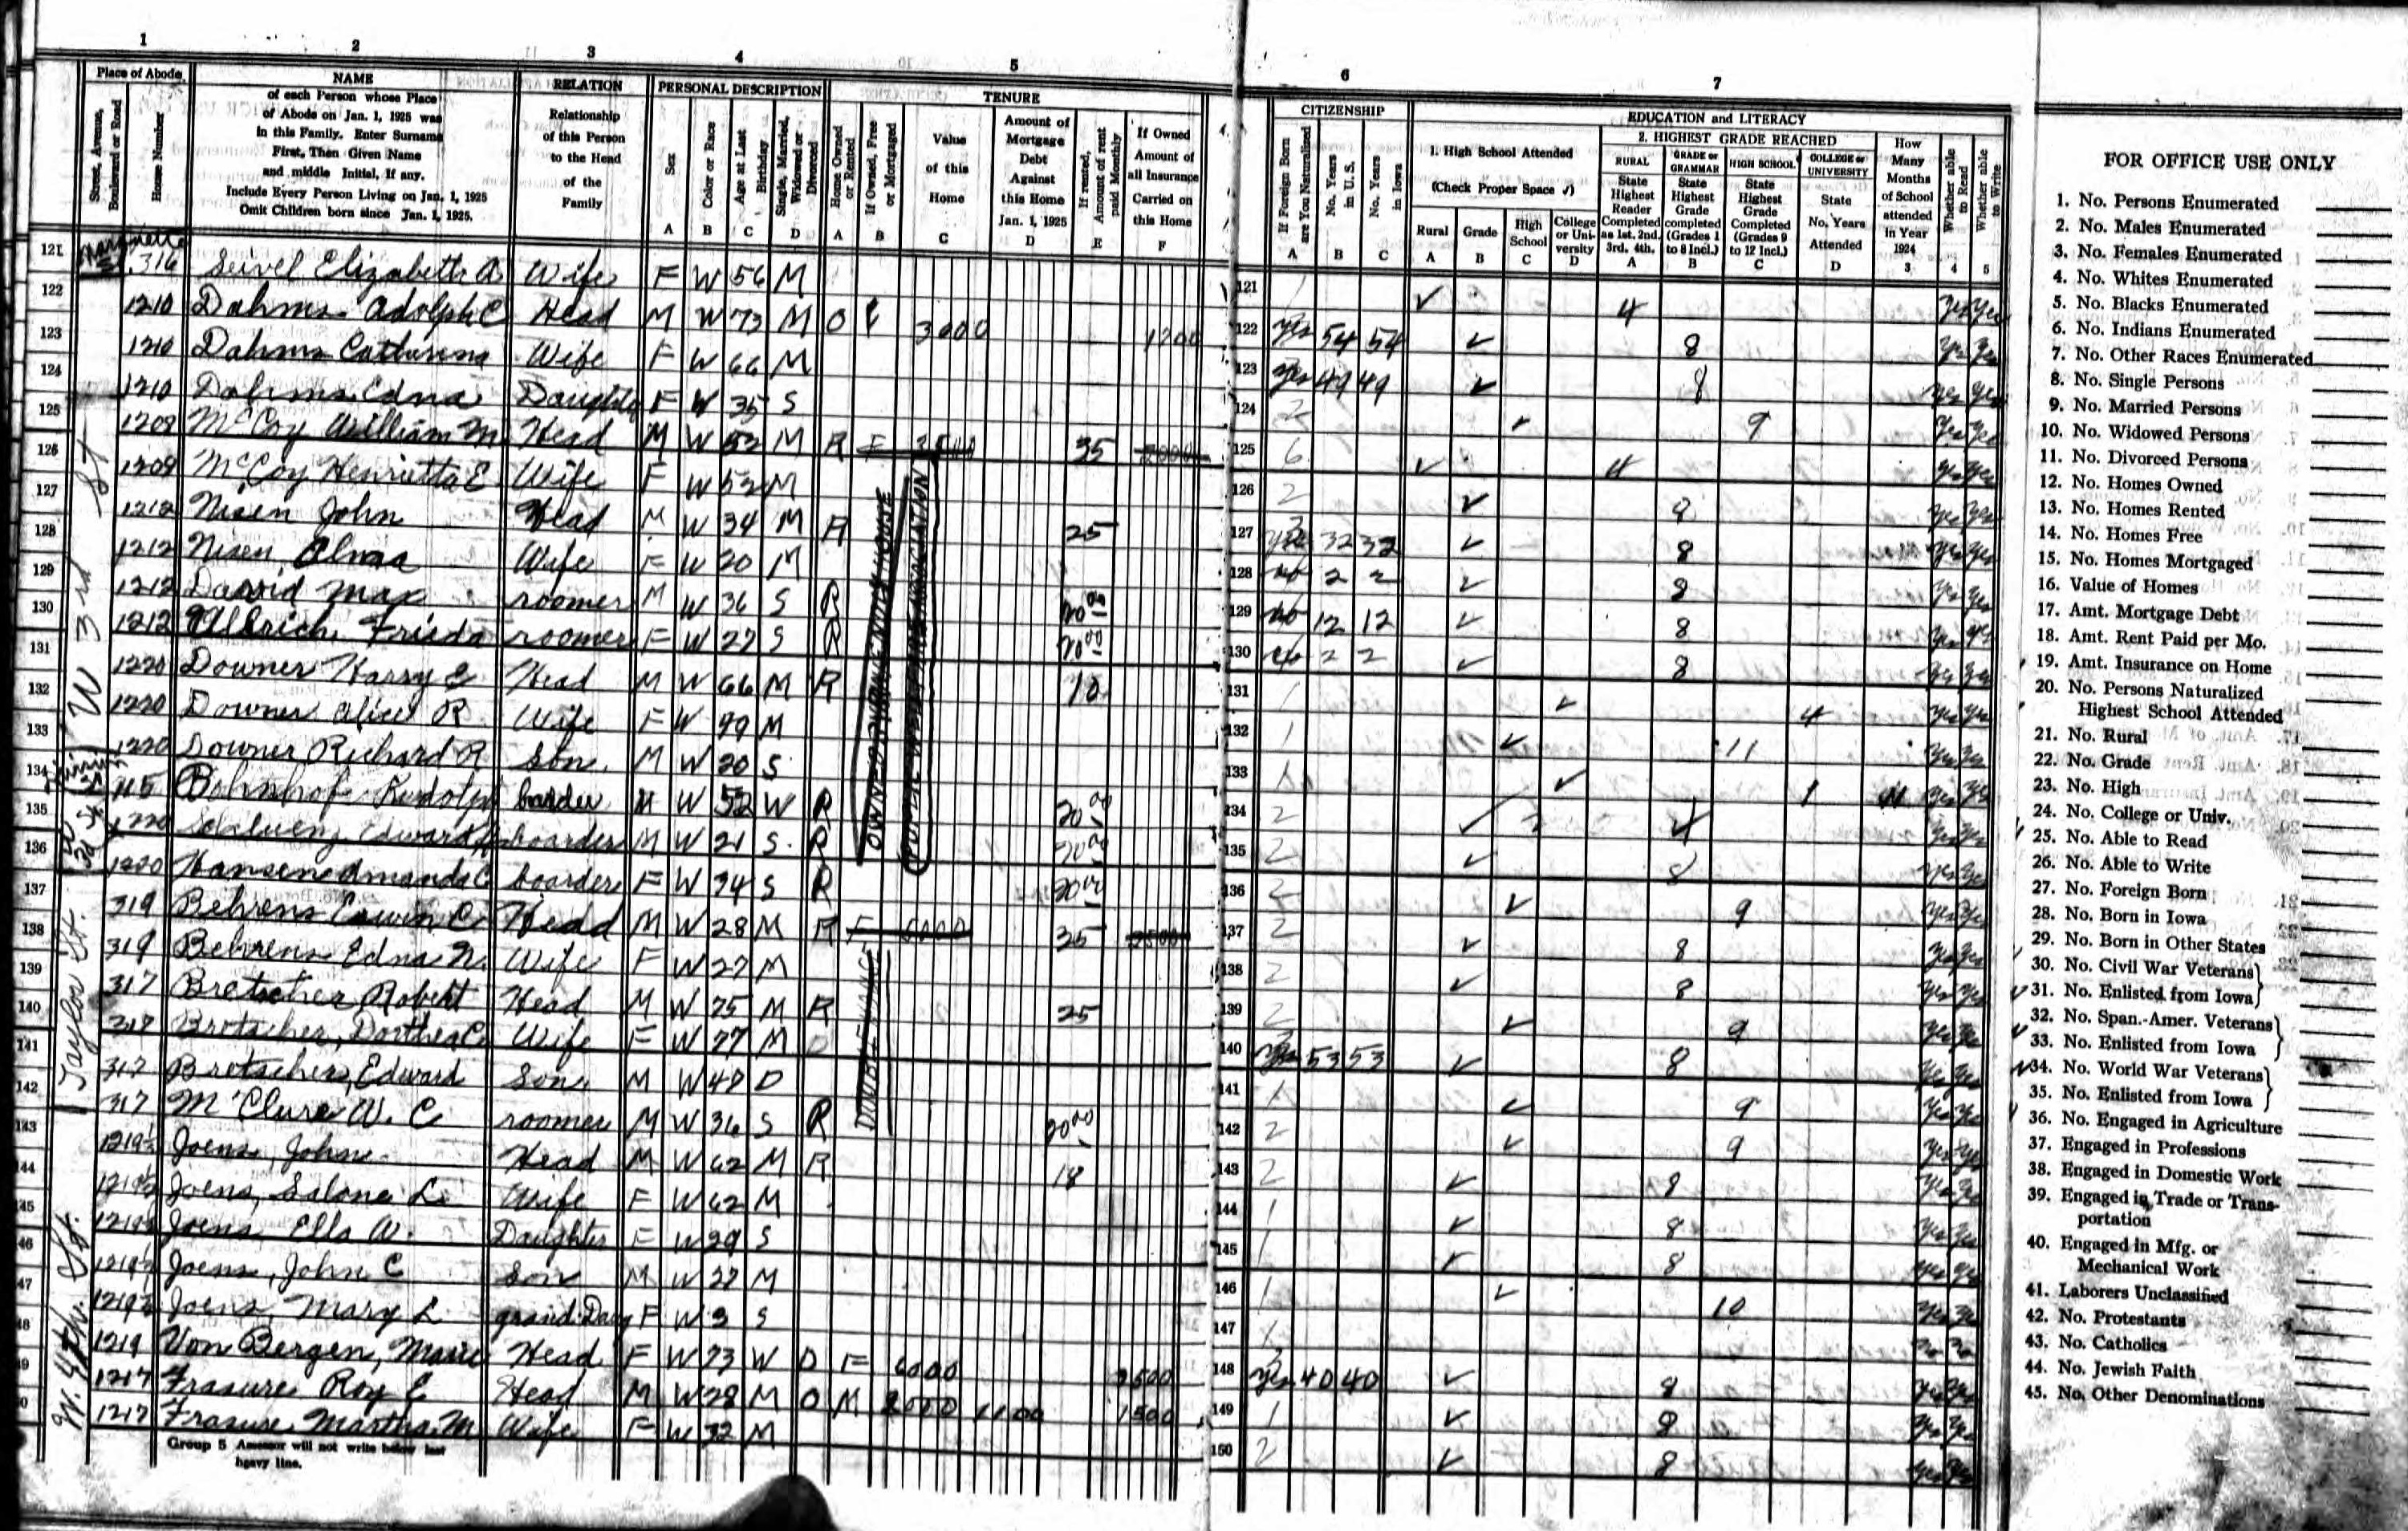 1 2 3 4 5 6 7
Place of Abode
Street, Avenue, Boulevard or Road
House Number
NAME
of each Person whose Place
of Abode on Jan. 1, 1925 was
in this Family. Enter Surname
First, Then Given Name
and middle Initial, if any.
Include Every Person Living on Jan. 1, 1925
Omit Children born since Jan. 1, 1925.
RELATION
Relationship
of this Person
to the Head
of the
Family
PERSONAL DESCRIPTION
Sex
Color or Race
Age at Last Birthday
Single, Married, Widowed or Divorced
A B C D
TENURE
Home Owned or Rented
If Owned, Free or Mortgaged
Value of this Home
Amount of Mortgage Debt Against this Home Jan. 1, 1925
If rented, Amount of rent paid Monthly
If Owned Amount of all Insurance Carried on this Home
A B C D E F
CITIZENSHIP
If Foreign Born are You Naturalized
No. Years in U. S.
No. Years in Iowa
A B C
EDUCATION and LITERACY
1. High School Attended
(Check Proper Space ✓)
Rural Grade High School College or University
A B C D
2. HIGHEST GRADE REACHED
RURAL
State Highest Reader Completed as 1st. 2nd. 3rd. 4th.
GRADE or GRAMMAR
State Highest Grade completed (Grades 1 to 8 Incl.)
HIGH SCHOOL
State Highest Grade Completed (Grades 9 to 12 Incl.)
COLLEGE or UNIVERSITY
State No. Years Attended
A B C D
How Many Months of School attended in Year 1924
3
Whether able to Read
4
Whether able to Write
5
121 316 Elizabeth A Wife F W 56 M ✓ 4 Yes Yes
122 1210 Dahms Adolph C Head M W 73 M O 3000 1200 yes 54 54 ✓ 8 Yes Yes
123 1210 Dahms Catherina Wife F W 66 M yes 49 49 ✓ 8 Yes Yes
124 1210 Dahms Edna Daughter F W 35 S 2 ✓ 9 Yes Yes
125 1208 McCoy William M Head M W 52 M R F 35 6 ✓ 4 Yes Yes
126 1208 McCoy Henrietta E Wife F W 52 M 2 ✓ 8 Yes Yes
127 1212 Nisen John Head M W 34 M R 25 32 32 ✓ 8 Yes Yes
128 1212 Nisen, Alma Wife F W 20 M no 2 2 ✓ 8 Yes Yes
129 1212 David Max roomer M W 36 S R 20 00 no 12 12 ✓ 8 Yes Yes
130 1212 Ullrich, Frieda roomer F W 27 S R 20 00 2 2 ✓ 8 Yes Yes
131 1220 Downer Harry E Head M W 66 M R 10 1 ✓ 4 Yes Yes
132 1220 Downer Alice R Wife F W 49 M 1 ✓ 11 Yes Yes
133 1220 Downer Richard R Son M W 20 S 1 ✓ 1 Yes Yes
134 115 Bohnhof Rudolph boarder M W 52 W R 20 00 2 4 Yes Yes
135 1220 Edward boarder M W 21 S R 20 00 2 ✓ 8 Yes Yes
136 1220 Hansen Amanda C boarder F W 34 S R 20 00 2 ✓ 9 Yes Yes
137 319 Behrens Erwin C Head M W 28 M R F 5000 35 2500 2 ✓ 8 Yes Yes
138 319 Behrens Edna N. Wife F W 27 M 2 ✓ 8 Yes Yes
139 317 Bretscher Robert Head M W 75 M R 25 2 ✓ 9 Yes Yes
140 317 Bretscher, Dorthea C Wife F W 77 M yes 53 53 ✓ 8 Yes Yes
141 317 Bretscher, Edward Son M W 47 D 1 ✓ 9 Yes Yes
142 317 McClure W. C roomer M W 36 S R 20 00 2 ✓ 9 Yes Yes
143 1219½ Joens, John Head M W 62 M R 18 2 ✓ 8 Yes Yes
144 1219½ Joens, Salona L. Wife F W 62 M 1 ✓ 8 Yes Yes
145 1219½ Joens, Ella W. Daughter F W 29 S 1 ✓ 8 Yes Yes
146 1219½ Joens, John C Son M W 27 M 1 ✓ 10 Yes Yes
147 1219½ Joens, Mary L grand Daug F W 3 S 1 no no
148 1219 Von Bergen, Marie Head F W 73 W O F 6000 3500 yes 40 40 ✓ 8 Yes Yes
149 1217 Frasure Roy E Head M W 28 M O M 2000 1100 1500 1 ✓ 8 Yes Yes
150 1217 Frasure, Martha M Wife F W 32 M 2 ✓ 8 Yes Yes
W 3rd St
Taylor St.
W. 4th St.
DOUBLE HOUSE
Group 5 Assessor will not write below last
heavy line.
FOR OFFICE USE ONLY
1. No. Persons Enumerated
2. No. Males Enumerated
3. No. Females Enumerated
4. No. Whites Enumerated
5. No. Blacks Enumerated
6. No. Indians Enumerated
7. No. Other Races Enumerated
8. No. Single Persons
9. No. Married Persons
10. No. Widowed Persons
11. No. Divorced Persons
12. No. Homes Owned
13. No. Homes Rented
14. No. Homes Free
15. No. Homes Mortgaged
16. Value of Homes
17. Amt. Mortgage Debt
18. Amt. Rent Paid per Mo.
19. Amt. Insurance on Home
20. No. Persons Naturalized
Highest School Attended
21. No. Rural
22. No. Grade
23. No. High
24. No. College or Univ.
25. No. Able to Read
26. No. Able to Write
27. No. Foreign Born
28. No. Born in Iowa
29. No. Born in Other States
30. No. Civil War Veterans
31. No. Enlisted from Iowa
32. No. Span.-Amer. Veterans
33. No. Enlisted from Iowa
34. No. World War Veterans
35. No. Enlisted from Iowa
36. No. Engaged in Agriculture
37. Engaged in Professions
38. Engaged in Domestic Work
39. Engaged in Trade or Trans-
portation
40. Engaged in Mfg. or
Mechanical Work
41. Laborers Unclassified
42. No. Protestants
43. No. Catholics
44. No. Jewish Faith
45. No. Other Denominations